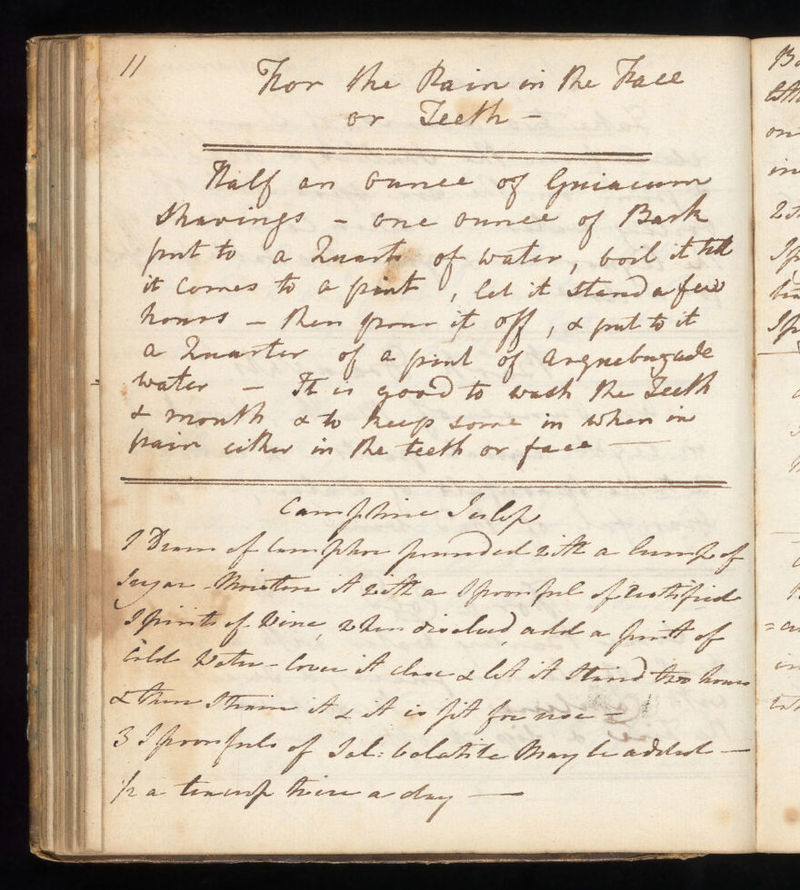 11
For the Pain in the Face
or Teeth -
Half an ounce of Guiacum
Shavings - one ounce of Bark
put to a Quart of water, boil it till
it comes to a pint, let it stand a few
hours - then pour it off, & put to it
a Quarter of a pint of Arquebuzade
water - It is good to wash the Teeth
& mouth & to keep some in when in
pain either in the teeth or face -
Camphire Julep
1 Dram of Camphor pounded with a lump of
Sugar - Moisten it with a Spoonful of Rectified
Spirits of Wine, when disolved add a pint of
Cold Water - Cover it close & let it Stand two hours
& then Strain it & it is fit for use
3 Spoonfuls of Sal: Volatile May be added -
a teacup twice a day -